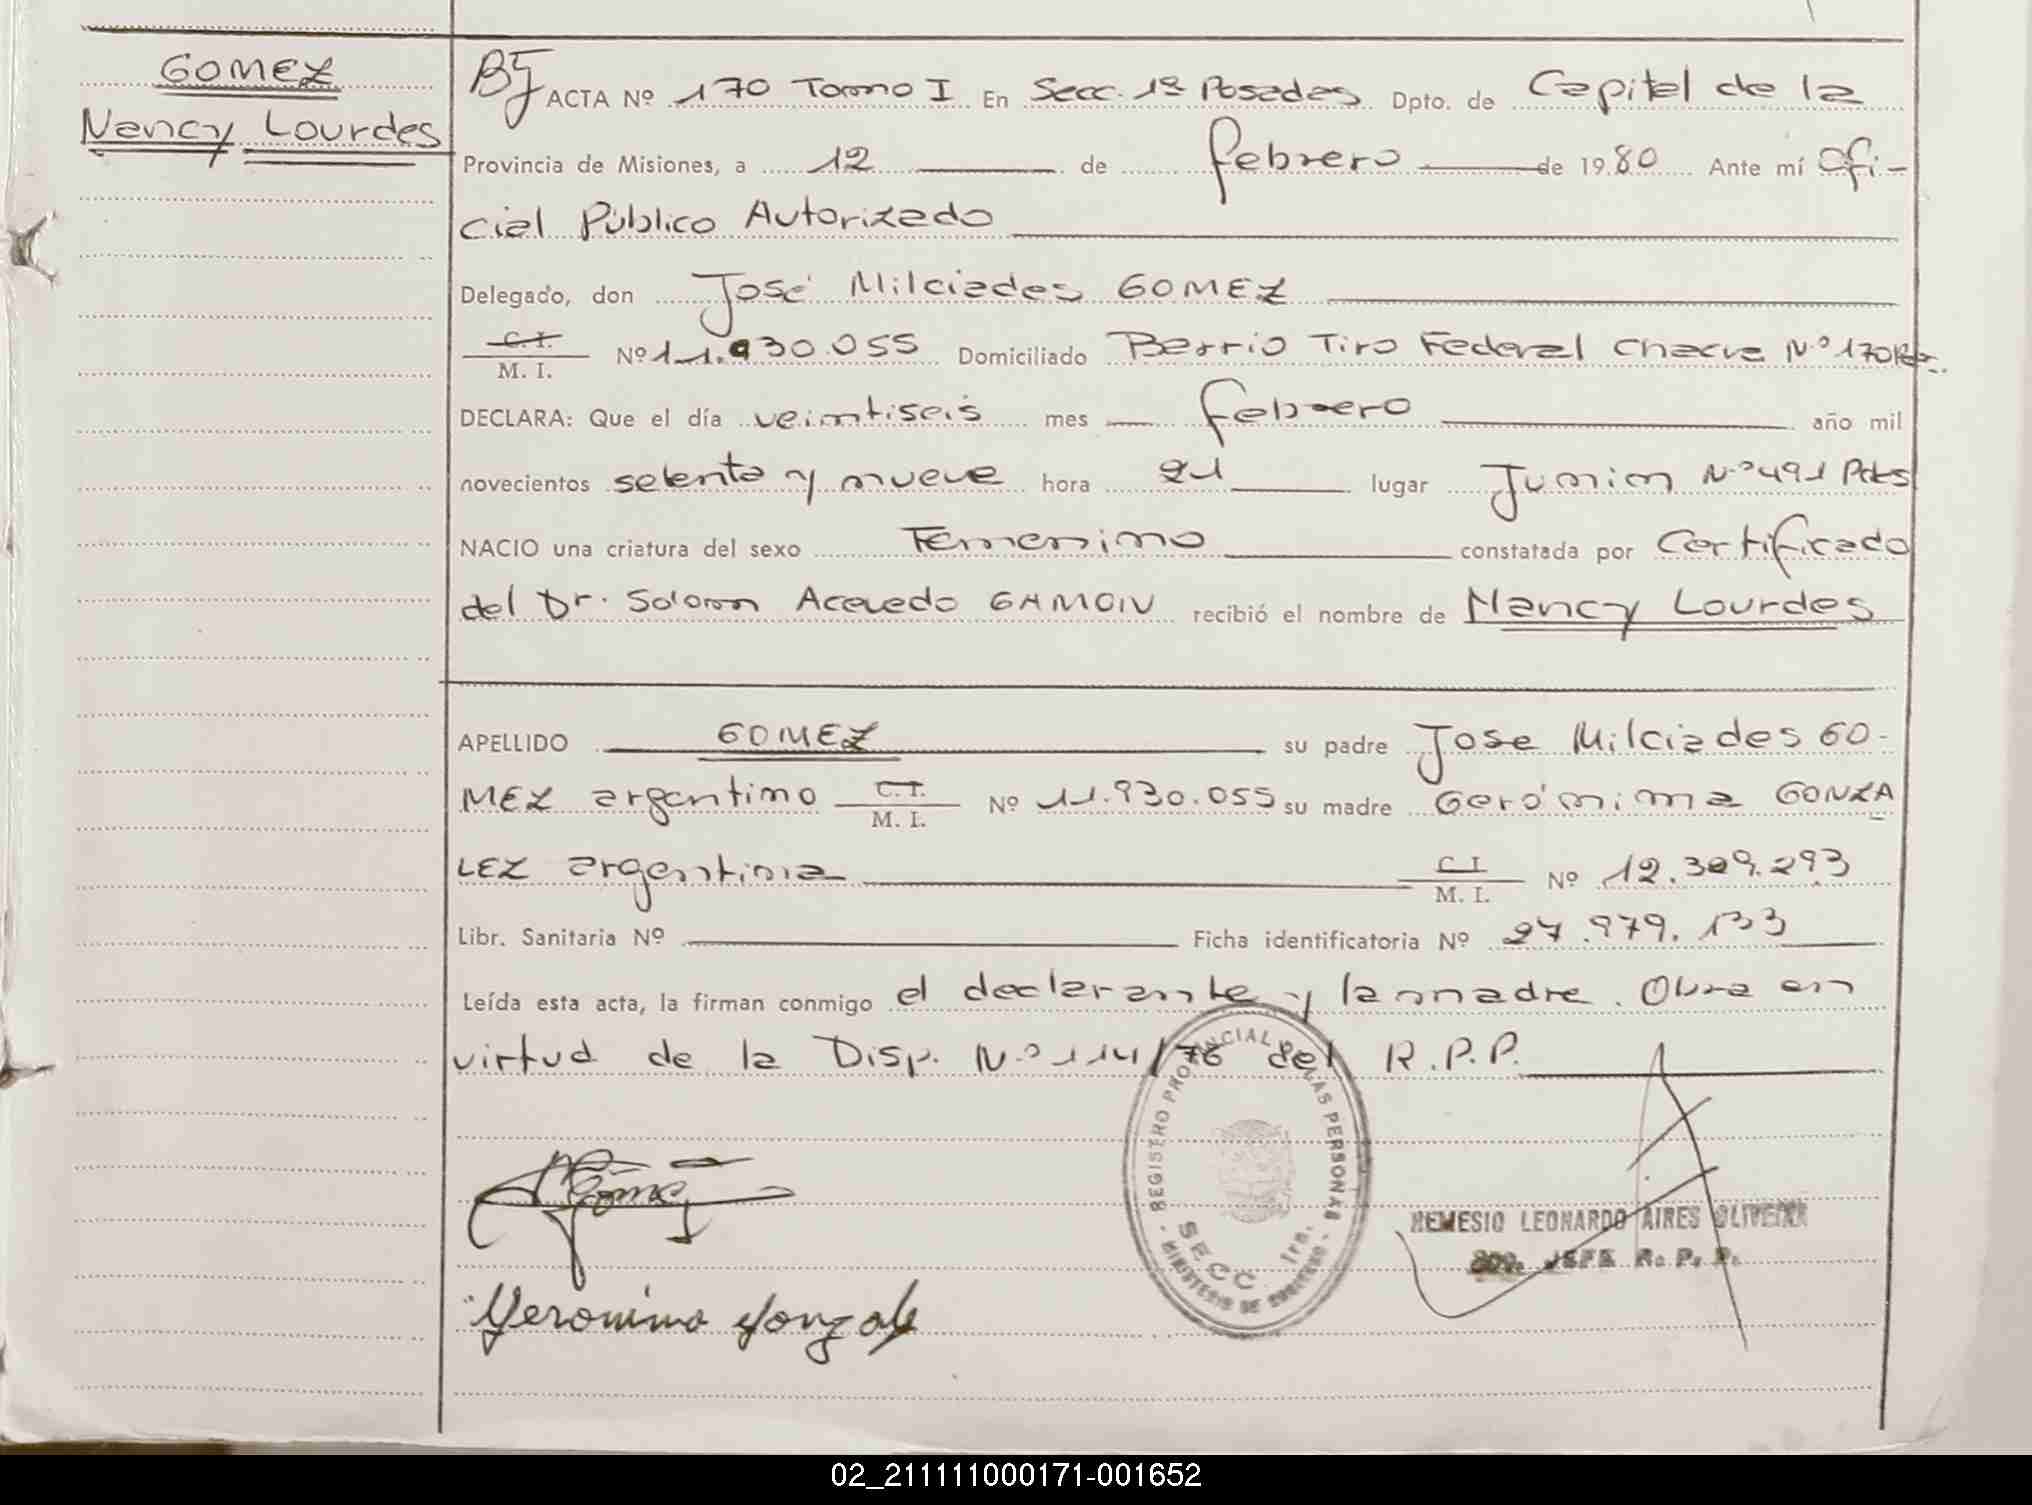 GOMEZ
Nancy Lourdes
ACTA Nº 170 Tomo I En Secc. 1ª Posadas Dpto. de Capital de la
Provincia de Misiones, a 12 de febrero de 1980 Ante mí Ofi-
cial Público Autorizado
Delegado, don José Milciades GOMEZ
C.I.
M. I. Nº 11.930.055 Domiciliado Barrio Tiro Federal Chacra Nº 170
DECLARA: Que el día veintiseis mes febrero año mil
novecientos setenta y nueve hora 21 lugar Junin Nº 491 Pdas
NACIO una criatura del sexo Femenino constatada por Certificado
del Dr. Solom Acevedo GAMON recibió el nombre de Nancy Lourdes
APELLIDO GOMEZ su padre Jose Milciades GO-
MEZ argentino C.I. M. I. Nº 11.930.055 su madre Gerónima GONZA
LEZ argentina C I M. I. Nº 12.309.293
Libr. Sanitaria Nº Ficha identificatoria Nº 27.979.133
Leída esta acta, la firman conmigo el declarante y la madre. Obra en
virtud de la Disp. Nº 114/76 del R.P.P.
REGISTRO PROVINCIAL DE LAS PERSONAS
SECC. 1ra.
MINISTERIO DE GOBIERNO
Gomez
NEMESIO LEONARDO AIRES OLIVEIRA
JEFE R. P. P.
Geronima Gonzalez
02_211111000171-001652